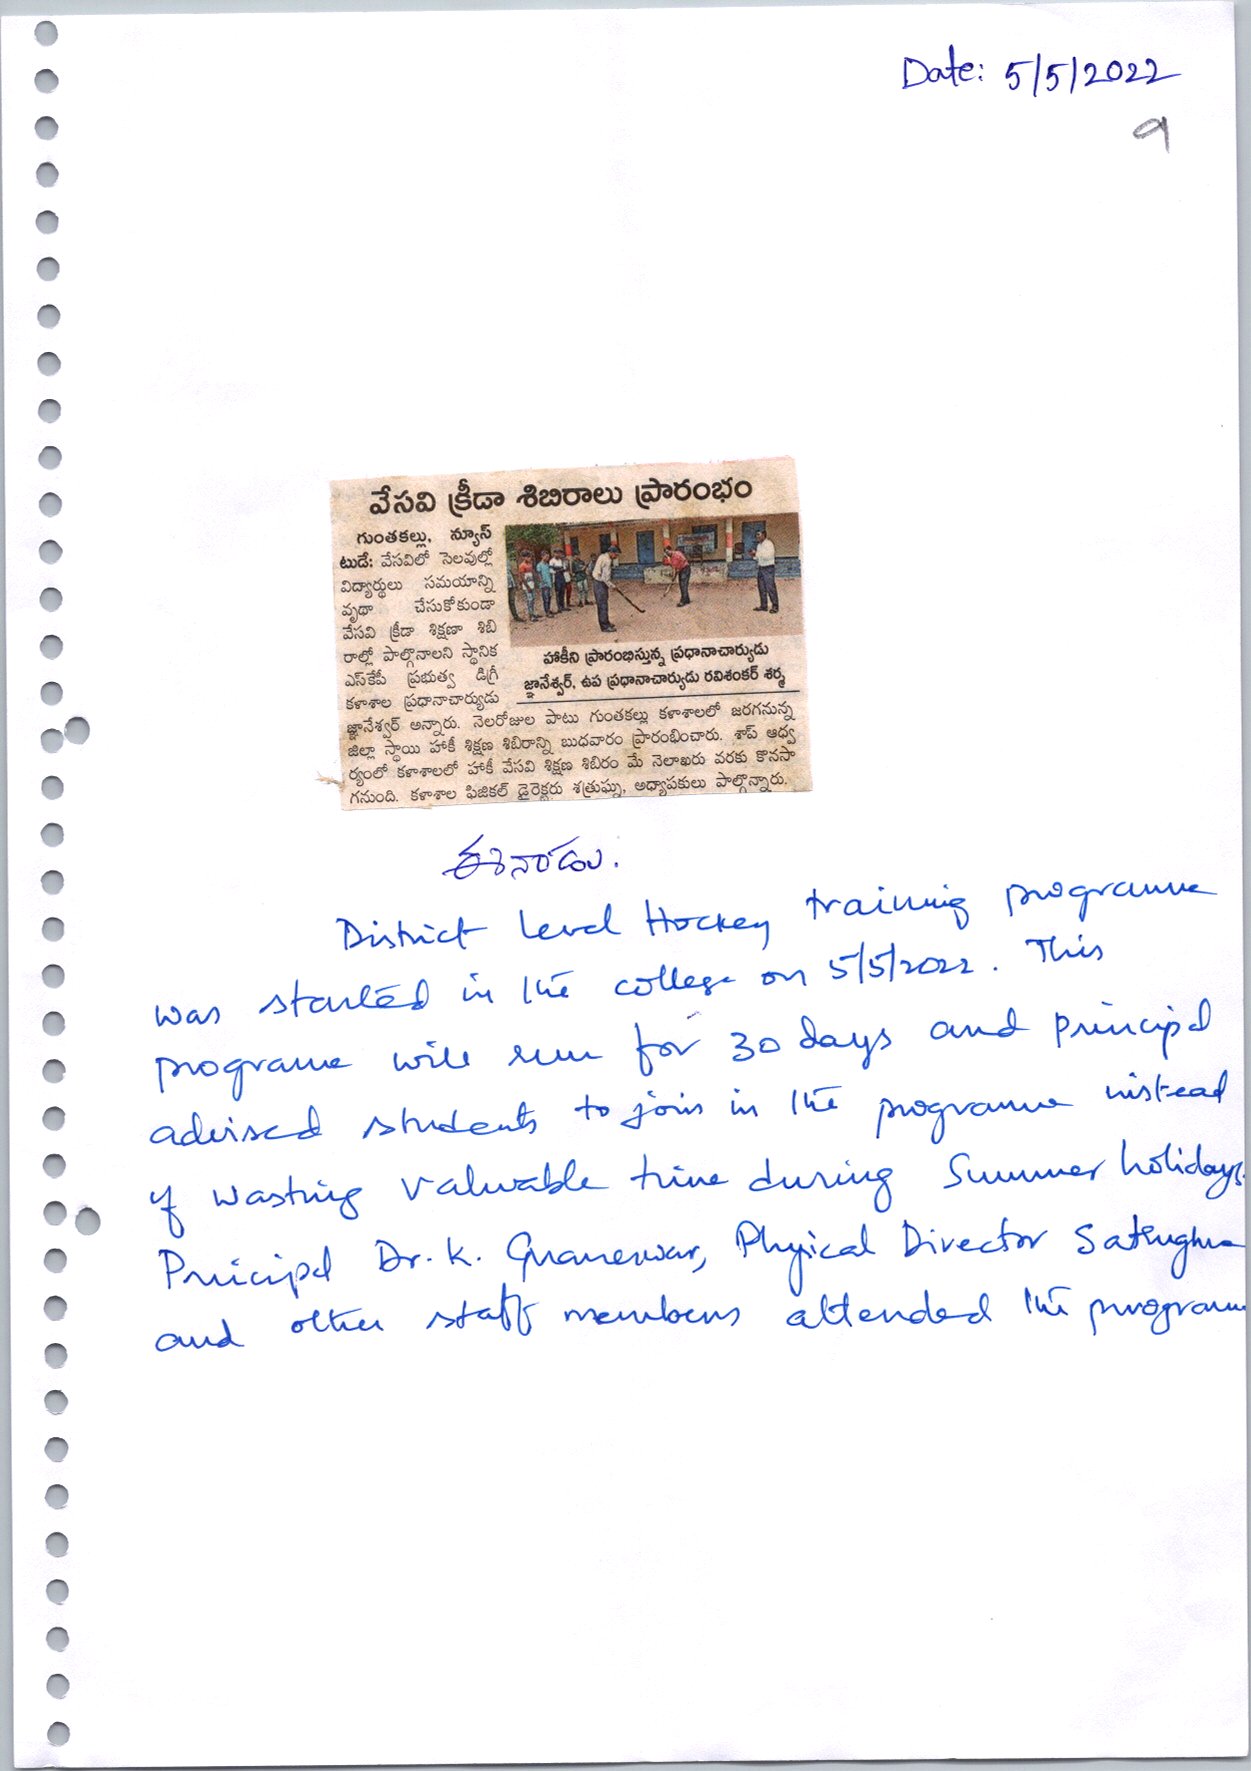 Date: 5/5/2022
9
వేసవి క్రీడా శిబిరాలు ప్రారంభం
గుంతకల్లు, న్యూస్
టుడే: వేసవిలో సెలవుల్లో
విద్యార్థులు సమయాన్ని
వృథా చేసుకోకుండా
వేసవి క్రీడా శిక్షణా శిబి
రాల్లో పాల్గొనాలని స్థానిక
ఎస్‌కేపీ ప్రభుత్వ డిగ్రీ
కళాశాల ప్రధానాచార్యుడు
హాకీని ప్రారంభిస్తున్న ప్రధానాచార్యుడు
జ్ఞానేశ్వర్, ఉప ప్రధానాచార్యుడు రవిశంకర్ శర్మ
జ్ఞానేశ్వర్ అన్నారు. నెలరోజుల పాటు గుంతకల్లు కళాశాలలో జరగనున్న
జిల్లా స్థాయి హాకీ శిక్షణ శిబిరాన్ని బుధవారం ప్రారంభించారు. శాప్ ఆధ్వ
ర్యంలో కళాశాలలో హాకీ వేసవి శిక్షణ శిబిరం మే నెలాఖరు వరకు కొనసా
గనుంది. కళాశాల ఫిజికల్ డైరెక్టరు శత్రుఘ్న, అధ్యాపకులు పాల్గొన్నారు.
ఈనాడు.
District Level Hockey training programme
was started in the college on 5/5/2022. This
programe will run for 30 days and principal
advised students to join in the programe instead
of wasting valuable time during Summer holidays.
Pricipal Dr. K. Gnaneswar, Physical Director Satrughna
and other staff members attended the program